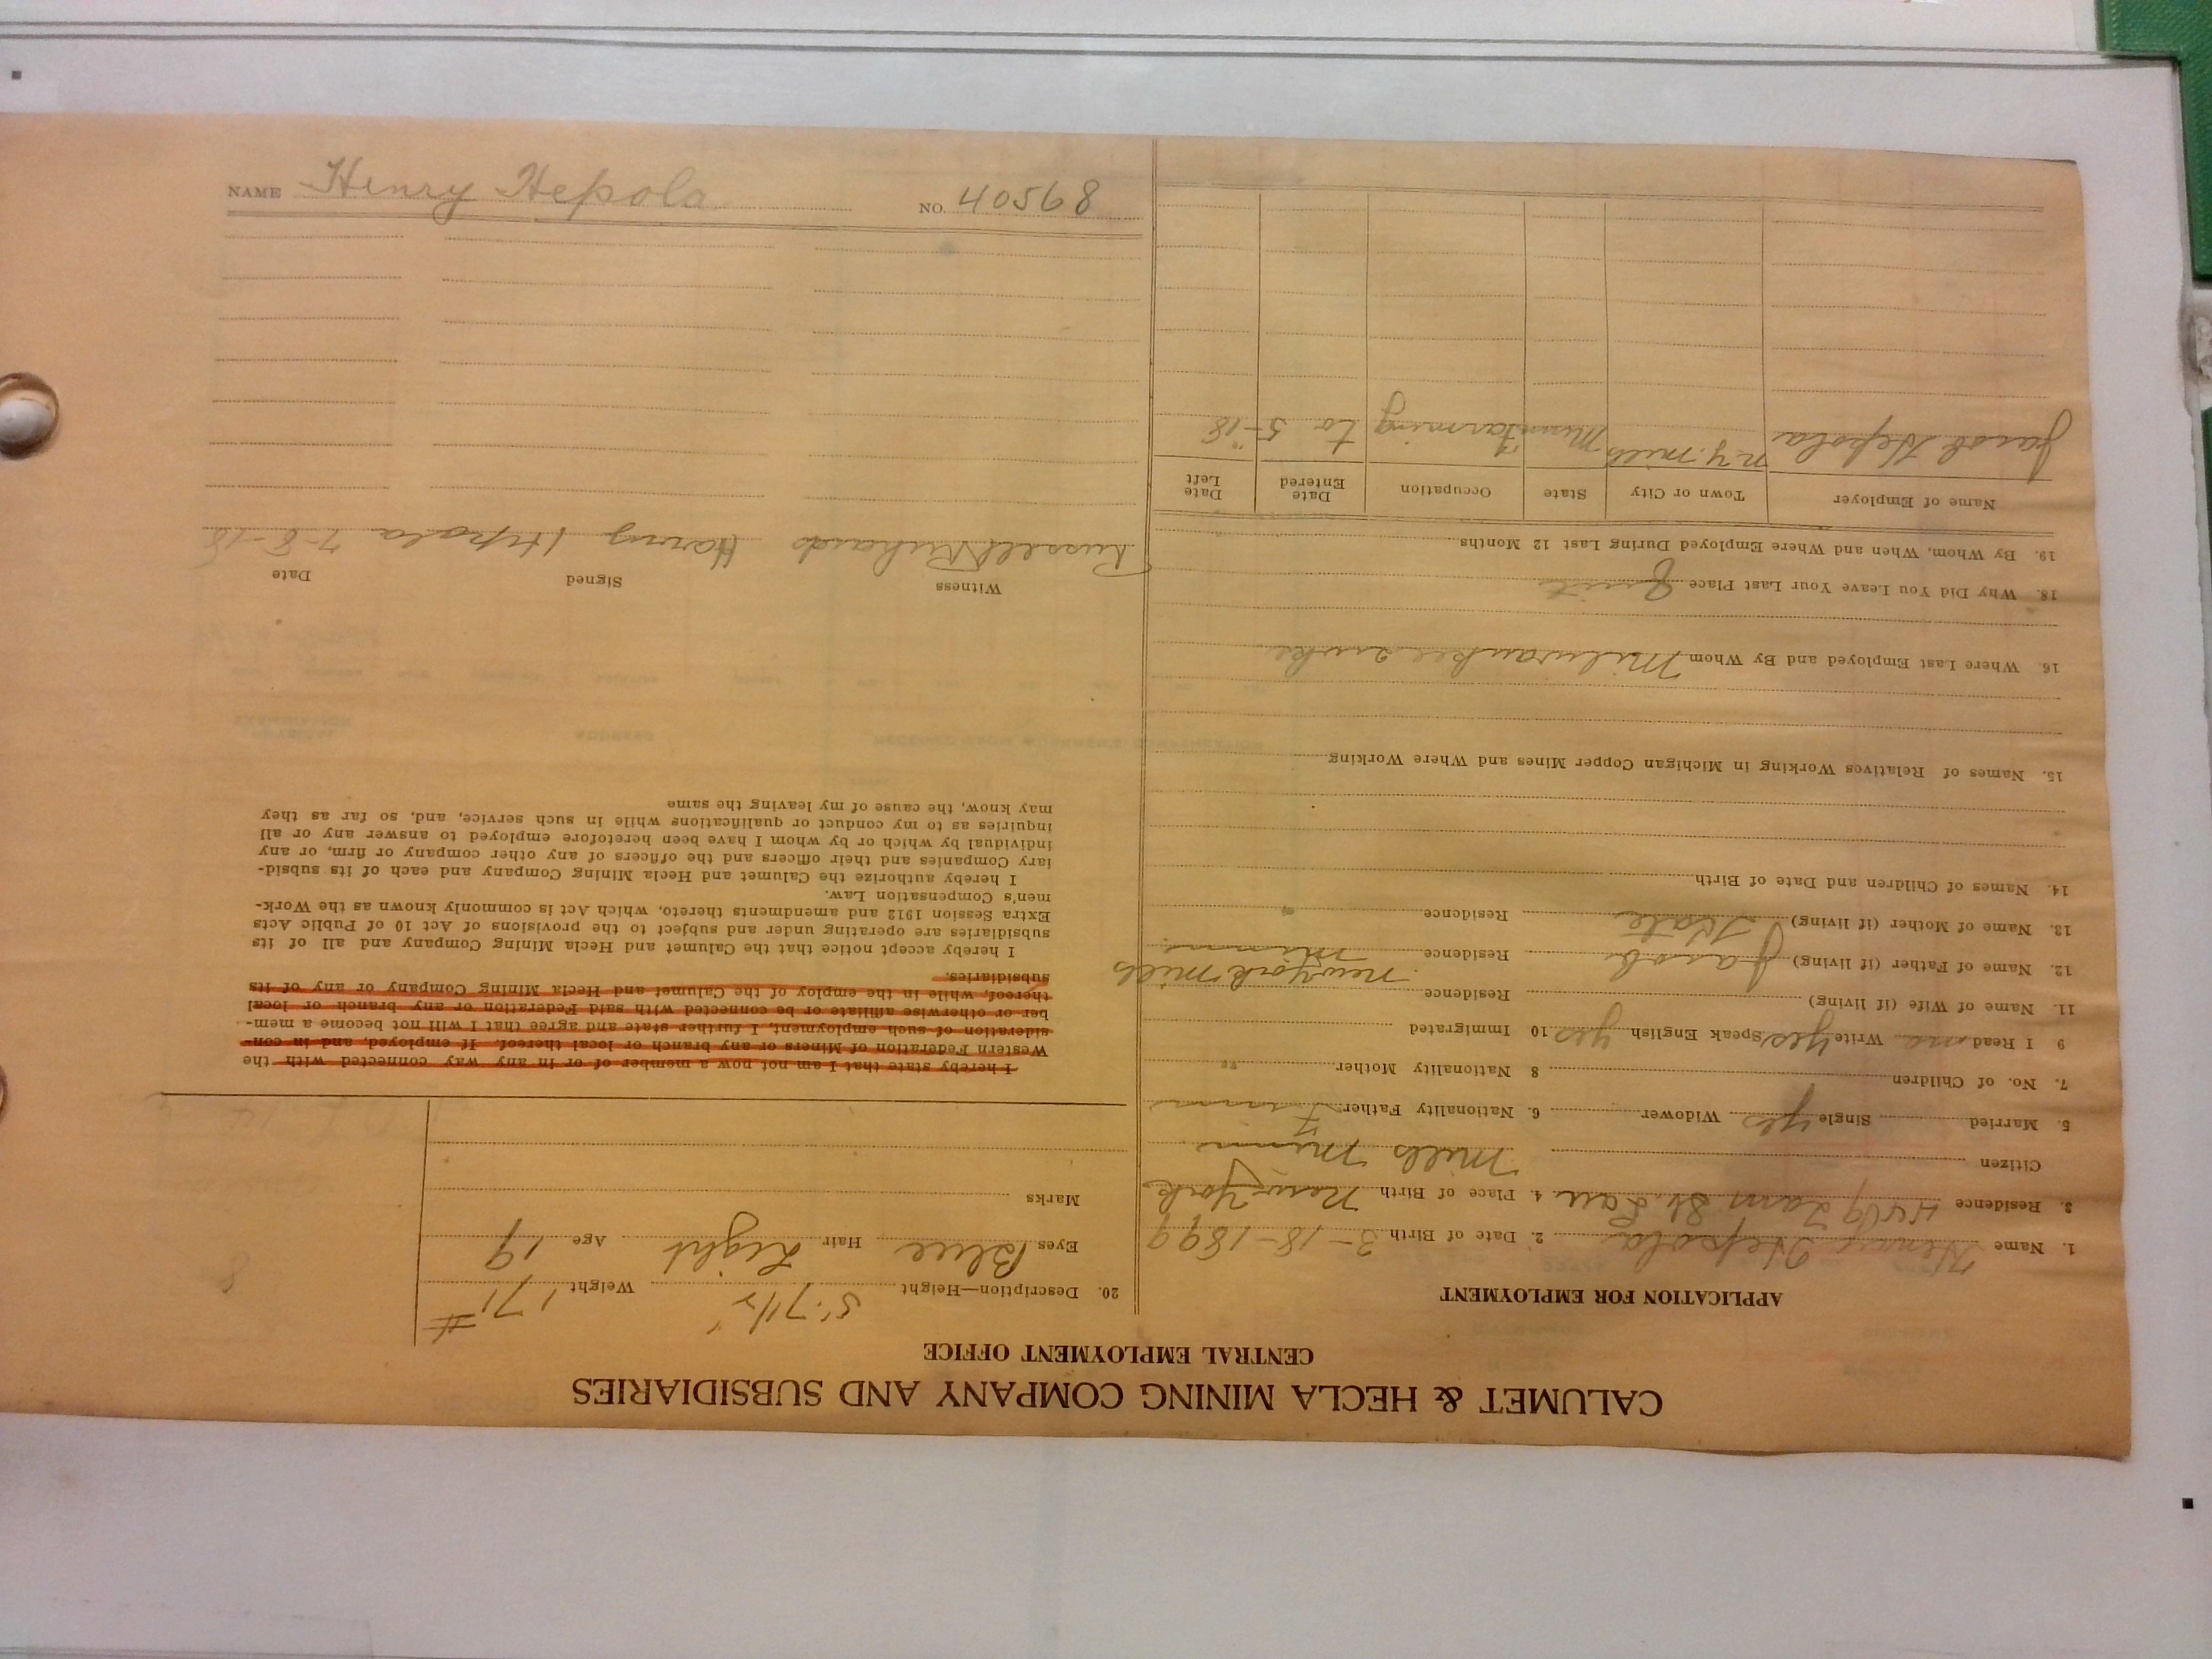 CALUMET & HECLA MINING COMPANY AND SUBSIDIARIES
CENTRAL EMPLOYMENT OFFICE
APPLICATION FOR EMPLOYMENT
1. Name Henry Hepola 2. Date of Birth 3-18-1899
3. Residence St. Lau. 4. Place of Birth New York
Citizen Mills Minn
5. Married Single yes Widower 6. Nationality Father Finn
7. No. of Children 8 Nationality Mother "
9 I Read Write yes Speak English yes 10 Immigrated
11. Name of Wife (if living) Residence
12. Name of Father (if living) Jacob Residence New York Mills Minn
13. Name of Mother (if living) Kate Residence "
14. Names of Children and Date of Birth
15. Names of Relatives Working in Michigan Copper Mines and Where Working
16. Where Last Employed and By Whom Milwaukee
18. Why Did You Leave Your Last Place Quit
19. By Whom, When and Where Employed During Last 12 Months
Name of Employer Town or City State Occupation Date Entered Date Left
Jacob Hepola N.Y. Mills Minn Farming to 5-18
20. Description—Height 5'. 7 1/2" Weight 171 #
Eyes Blue Hair Light Age 19
Marks
I hereby state that I am not now a member of or in any way connected with the
Western Federation of Miners or any branch or local thereof. If employed, and in con-
sideration of such employment, I further state and agree that I will not become a mem-
ber or otherwise affiliate or be connected with said Federation or any branch or local
thereof, while in the employ of the Calumet and Hecla Mining Company or any of its
subsidiaries.
I hereby accept notice that the Calumet and Hecla Mining Company and all of its
subsidiaries are operating under and subject to the provisions of Act 10 of Public Acts
Extra Session 1912 and amendments thereto, which Act is commonly known as the Work-
men's Compensation Law.
I hereby authorize the Calumet and Hecla Mining Company and each of its subsid-
iary Companies and their officers and the officers of any other company or firm, or any
individual by which or by whom I have been heretofore employed to answer any or all
inquiries as to my conduct or qualifications while in such service, and, so far as they
may know, the cause of my leaving the same
Witness Signed Date
Russell Richards Henry Hepola 7-8-18
NAME Henry Hepola NO. 40568